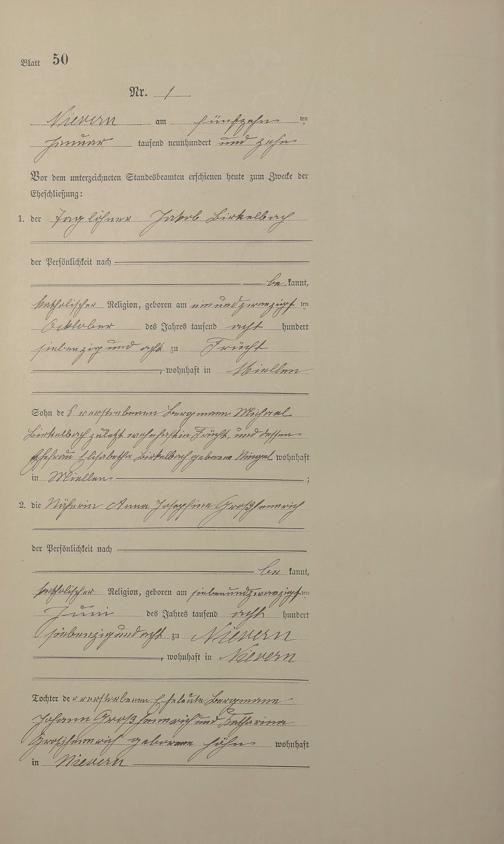 Blatt 50
Nr. 1
Nievern am fünfzehn ten
Januar tausend neunhundert und zehn
Vor dem unterzeichneten Standesbeamten erschienen heute zum Zwecke der
Eheschließung:
1. der Taglöhner Jakob Birkelbach
der Persönlichkeit nach
be kannt,
katholischer Religion, geboren am einundzwanzigsten
Oktober des Jahres tausend acht hundert
siebenzig und acht zu Frücht
, wohnhaft in Miellen
Sohn des verstorbenen Bergmann Michael
Birkelbach zuletzt wohnhaft in Frücht und dessen
Ehefrau Elisabetha Birkelbach geborene wohnhaft
in Miellen ;
2. die Näherin Anna Josephine Großheinrich
der Persönlichkeit nach
be kannt,
katholischer Religion, geboren am siebenundzwanzigsten
Juni des Jahres tausend acht hundert
siebenzig und acht zu Nievern
, wohnhaft in Nievern
Tochter der verstorbenen Eheleute Bergmann
Johann Großheinrich und Katharina
Großheinrich geborene Höhn wohnhaft
in Nievern